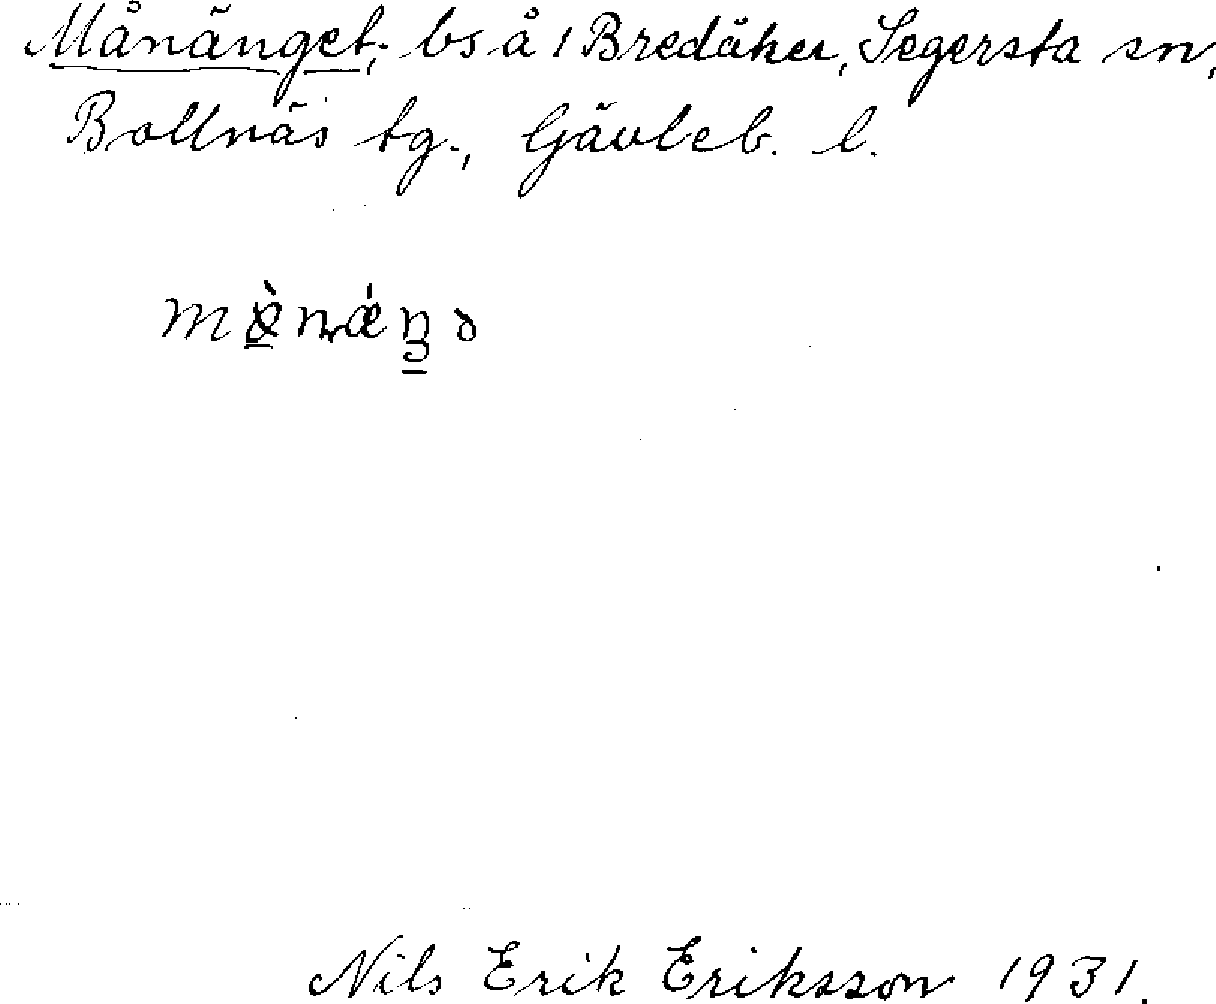 Månänget, bs å 1 Bredåker, Segersta sn,
Bollnäs tg., Gävleb. l.
Nils Erik Eriksson 1931.